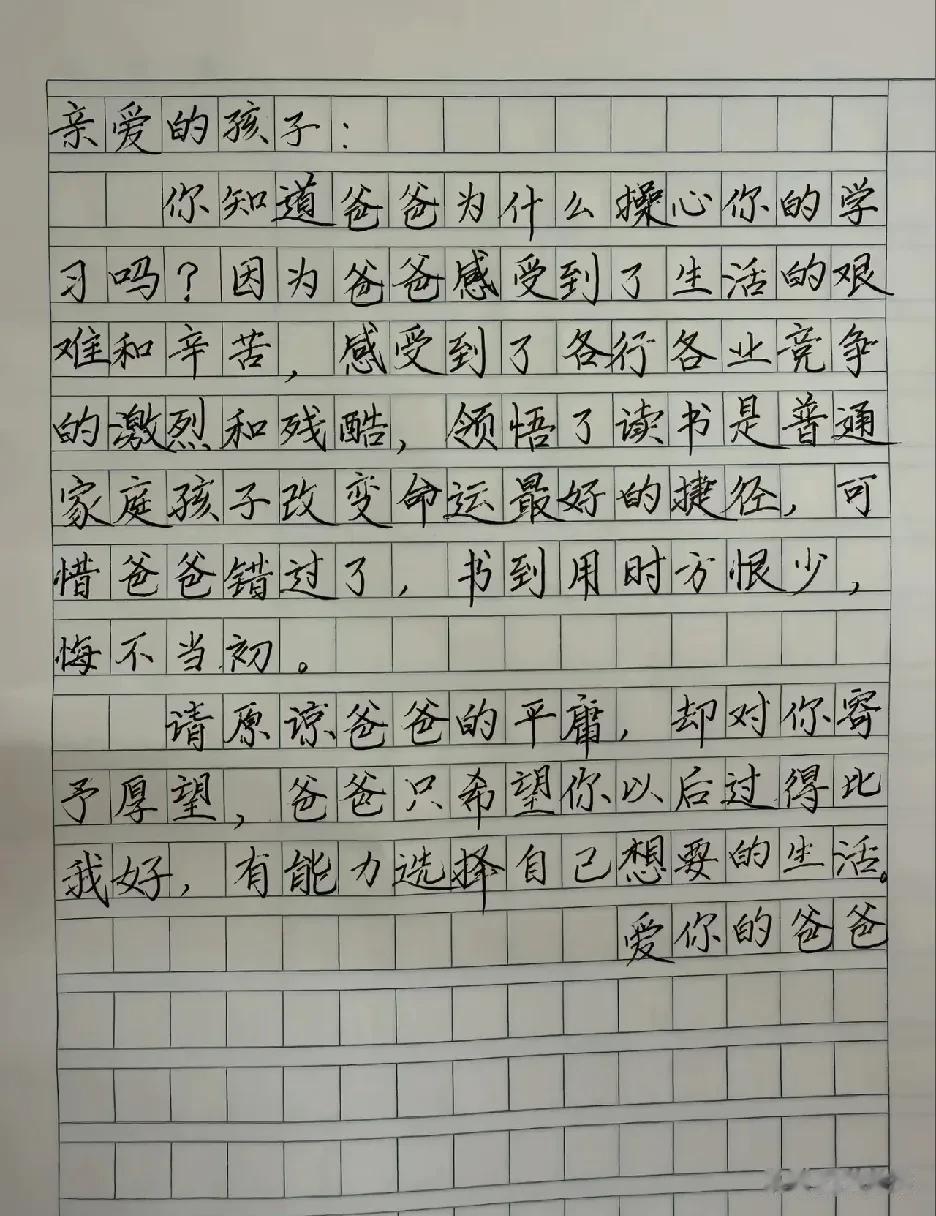 亲爱的孩子:
你知道爸爸为什么操心你的学
习吗?因为爸爸感受到了生活的艰
难和辛苦,感受到了各行各业竞争
的激烈和残酷,领悟了读书是普通
家庭孩子改变命运最好的捷径,可
惜爸爸错过了,书到用时方恨少,
悔不当初。
请原谅爸爸的平庸,却对你寄
予厚望,爸爸只希望你以后过得比
我好,有能力选择自己想要的生活。
爱你的爸爸